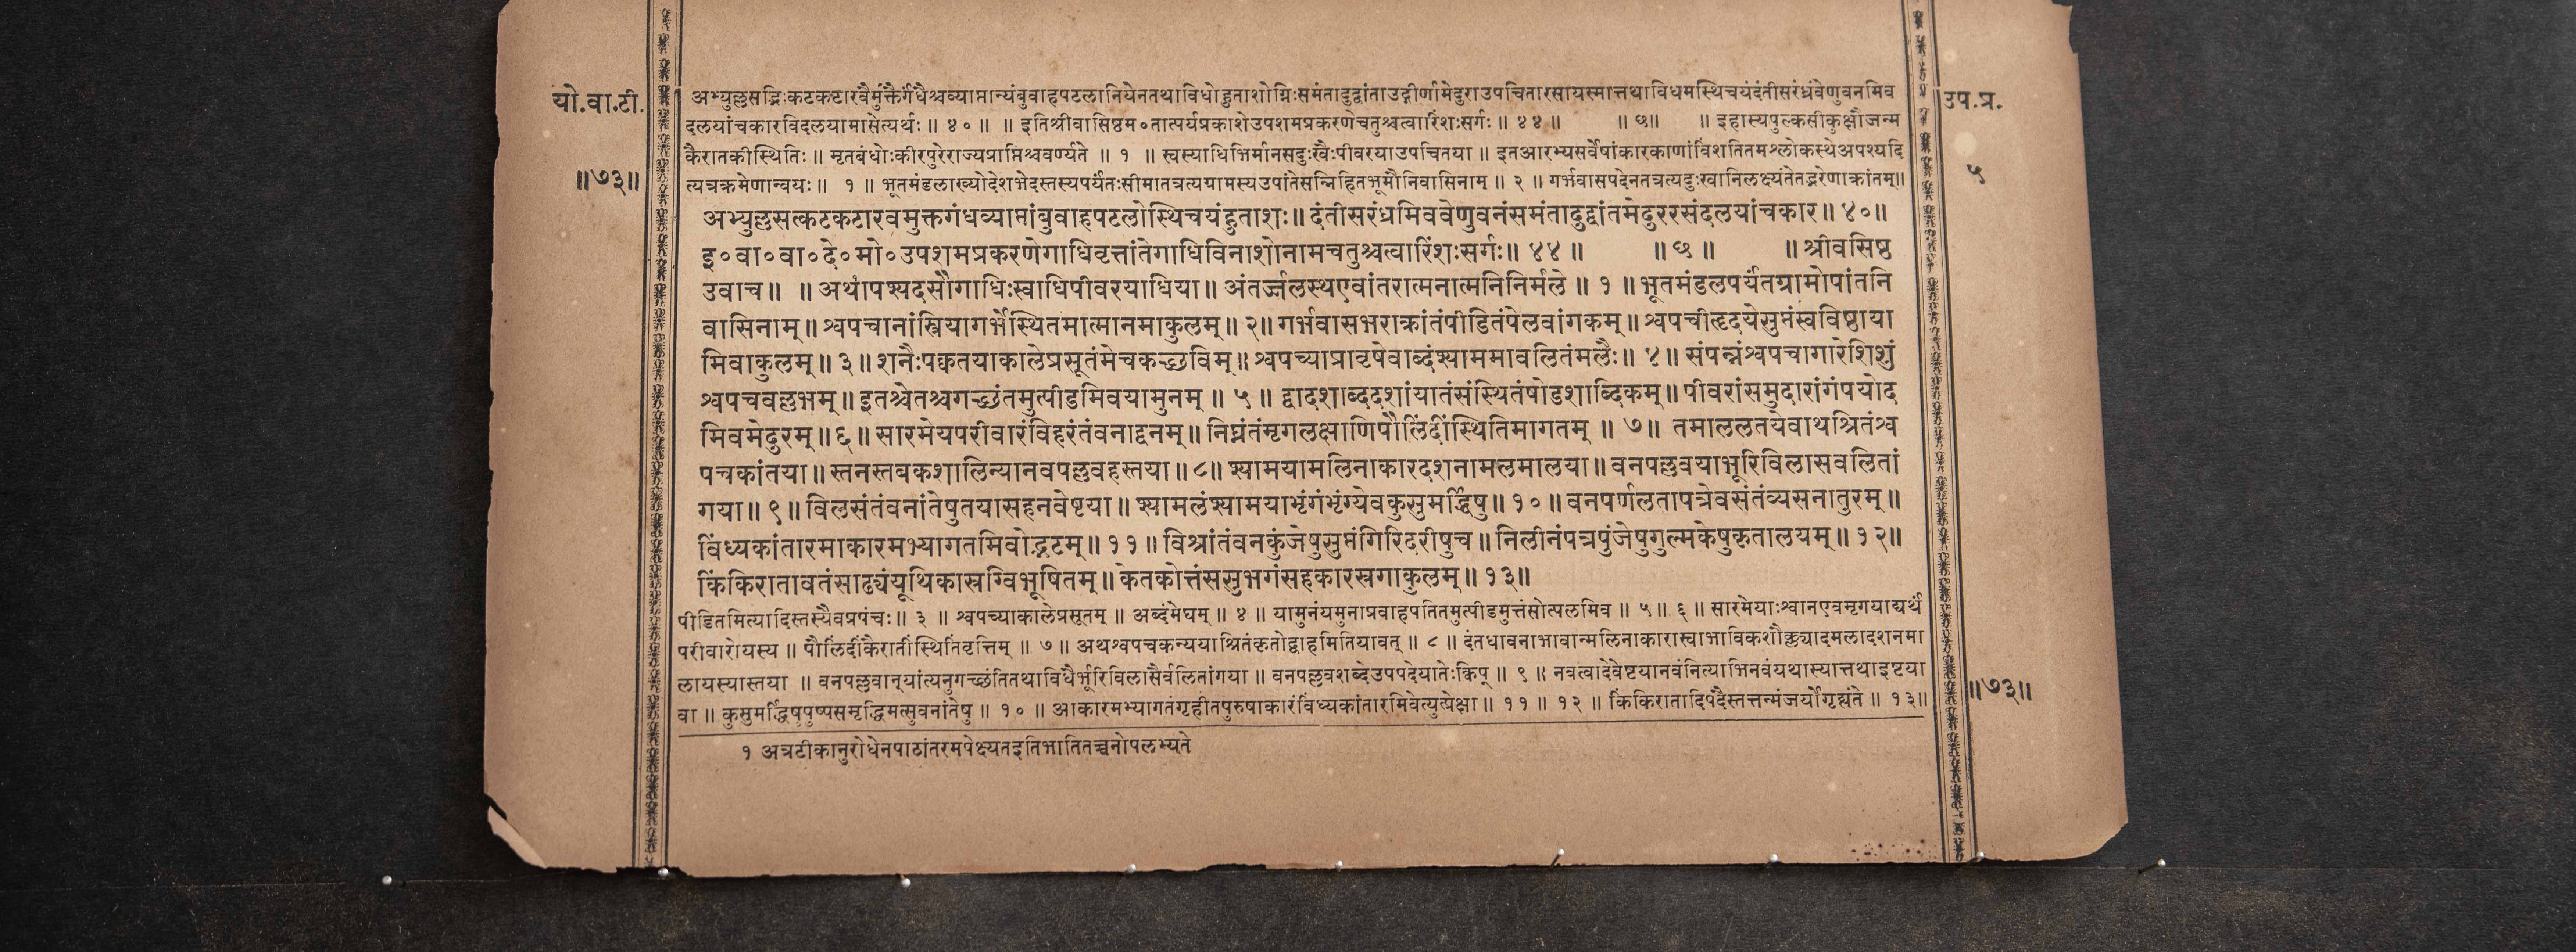 यो.वा.टी.
॥७३॥
उप.प्र.
५
अभ्युल्लसद्भिःकटकटारवैर्मुक्तैर्गंधैश्चव्याप्तान्यंबुवाहपटलानियेनतथाविधोहुताशोग्निःसमंतादुद्वांताउद्गीर्णामेदुराउपचितारसायस्मात्तथाविधमस्थिचयंदंतीसरंध्रंवेणुवनमिव
दलयांचकारविदलयामासेत्यर्थः॥ ४० ॥ ॥ इतिश्रीवासिष्ठम०तात्पर्यप्रकाशेउपशमप्रकरणेचतुश्चत्वारिंशःसर्गः॥ ४४ ॥ ॥ छ॥ ॥ इहास्यपुल्कसीकुक्षौजन्म
कैरातकीस्थितिः॥ मृतबंधोःकीरपुरेराज्यप्राप्तिश्चवर्ण्यते ॥ १ ॥ स्वस्याधिभिर्मानसदुःखैःपीवरयाउपचितया॥ इतआरभ्यसर्वेषांकारकाणांविंशतितमश्लोकस्थेअपश्यदि
त्यत्रक्रमेणान्वयः॥ १ ॥ भूतमंडलाख्योदेशभेदस्तस्यपर्यंतःसीमातत्रत्यग्रामस्यउपांतेसन्निहितभूमौनिवासिनाम्॥ २ ॥ गर्भवासपदेनतत्रत्यदुःखानिलक्ष्यंतेतद्भरेणाक्रांतम्॥
अभ्युल्लसत्कटकटारवमुक्तगंधव्याप्तांबुवाहपटलोस्थिचयंहुताशः॥ दंतीसरंध्रमिववेणुवनंसमंतादुद्वांतमेदुररसंदलयांचकार॥ ४०॥
इ०वा०वा०दे०मो०उपशमप्रकरणेगाधिवृत्तांतेगाधिविनाशोनामचतुश्चत्वारिंशःसर्गः॥ ४४ ॥ ॥ छ ॥ ॥ श्रीवसिष्ठ
उवाच॥ ॥ अथापश्यदसौगाधिःस्वाधिपीवरयाधिया॥ अंतर्जलस्थएवांतरात्मनात्मनिनिर्मले ॥ १ ॥ भूतमंडलपर्यंतग्रामोपांतनि
वासिनाम्॥ श्वपचानांस्त्रियागर्भेस्थितमात्मानमाकुलम्॥ २॥ गर्भवासभराक्रांतंपीडितंपेलवांगकम्॥ श्वपचीहृदयेसुप्तंस्वविष्ठाया
मिवाकुलम्॥ ३॥ शनैःपक्वतयाकालेप्रसूतंमेचकच्छविम्॥ श्वपच्याप्रावृषेवाब्दंश्याममावलितंमलैः॥ ४॥ संपन्नंश्वपचागारेशिशुं
श्वपचवल्लभम्॥ इतश्चेतश्चगच्छंतमुत्पीडमिवयामुनम् ॥ ५ ॥ द्वादशाब्ददशांयातंसंस्थितंषोडशाब्दिकम्॥ पीवरांसमुदारांगंपयोद
मिवमेदुरम्॥६॥ सारमेयपरीवारंविहरंतंवनाद्वनम्॥ निघ्नंतंमृगलक्षाणिपौलिंदींस्थितिमागतम् ॥ ७॥ तमाललतयेवाथश्रितंश्व
पचकांतया॥ स्तनस्तबकशालिन्यानवपल्लवहस्तया॥ ८॥ श्यामयामलिनाकारदशनामलमालया॥ वनपल्लवयाभूरिविलासवलितां
गया॥ ९॥ विलसंतंवनांतेषुतयासहनवेष्टया॥ श्यामलंश्यामयाभृंगंभृंग्येवकुसुमर्द्धिषु॥ १०॥ वनपर्णलतापत्रेवसंतंव्यसनातुरम्॥
विंध्यकांतारमाकारमभ्यागतमिवोद्भटम्॥ ११॥ विश्रांतंवनकुंजेषुसुप्तंगिरिदरीषुच॥ निलीनंपत्रपुंजेषुगुल्मकेषुकृतालयम्॥ १२॥
किंकिरातावतंसाढ्यंयूथिकास्रग्विभूषितम्॥ केतकोत्तंससुभगंसहकारस्रगाकुलम्॥ १३॥
पीडितमित्यादिस्तस्यैवप्रपंचः॥ ३ ॥ श्वपच्याकालेप्रसूतम् ॥ अब्दंमेघम्॥ ४ ॥ यामुनंयमुनाप्रवाहपतितमुत्पीडमुत्तंसोत्पलमिव ॥ ५॥ ६ ॥ सारमेयाःश्वानएवमृगयाद्यर्थ
परीवारोयस्य ॥ पौलिंदींकैरातींस्थितिंवृत्तिम् ॥ ७॥ अथश्वपचकन्ययाश्रितंकृतोद्वाहमितियावत् ॥ ८ ॥ दंतधावनाभावान्मलिनाकारास्वाभाविकशौक्ल्यादमलादशनमा
लायस्यास्तया ॥ वनपल्लवान्यांत्यनुगच्छंतितथाविधैर्भूरिविलासैर्वलितांगया ॥ वनपल्लवशब्देउपपदेयातेःक्विप् ॥ ९ ॥ नवत्वादेवेष्टयानवंनित्याभिनवंयथास्यात्तथाइष्टया
वा ॥ कुसुमर्द्धिषुपुष्पसमृद्धिमत्सुवनांतेषु ॥ १० ॥ आकारमभ्यागतंगृहीतपुरुषाकारंविंध्यकांतारमिवेत्युत्प्रेक्षा ॥ ११ ॥ १२ ॥ किंकिरातादिपदैस्तत्तन्मंजर्योगृह्यंते ॥ १३॥
॥७३॥
१ अत्रटीकानुरोधेनपाठांतरमपेक्ष्यतइतिभातितच्चनोपलभ्यते